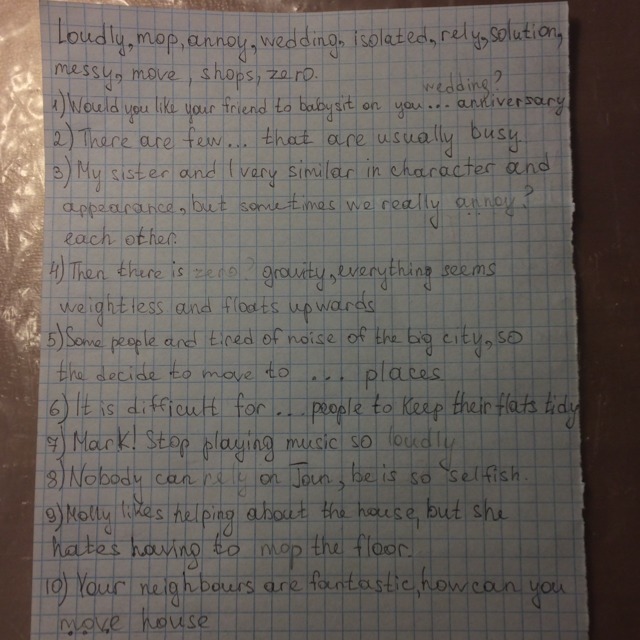 Loudly, mop, annoy, wedding, isolated, rely, solution,
messy, move, shops, zero.
wedding?
1) Would you like your friend to babysit on you... anniversary
2) There are few... that are usually busy
3) My sister and I very similar in character and
appearance, but sometimes we really annoy?
each other.
4) Then there is zero? gravity, everything seems
weightless and floats upwards
5) Some people and tired of noise of the big city, so
the decide to move to ... places
6) It is difficult for ... people to keep their flats tidy
7) Mark! Stop playing music so loudly
8) Nobody can rely on , be is so selfish.
9) Molly likes helping about the house, but she
hates having to mop the floor.
10) Your neighbours are fantastic, how can you
move house